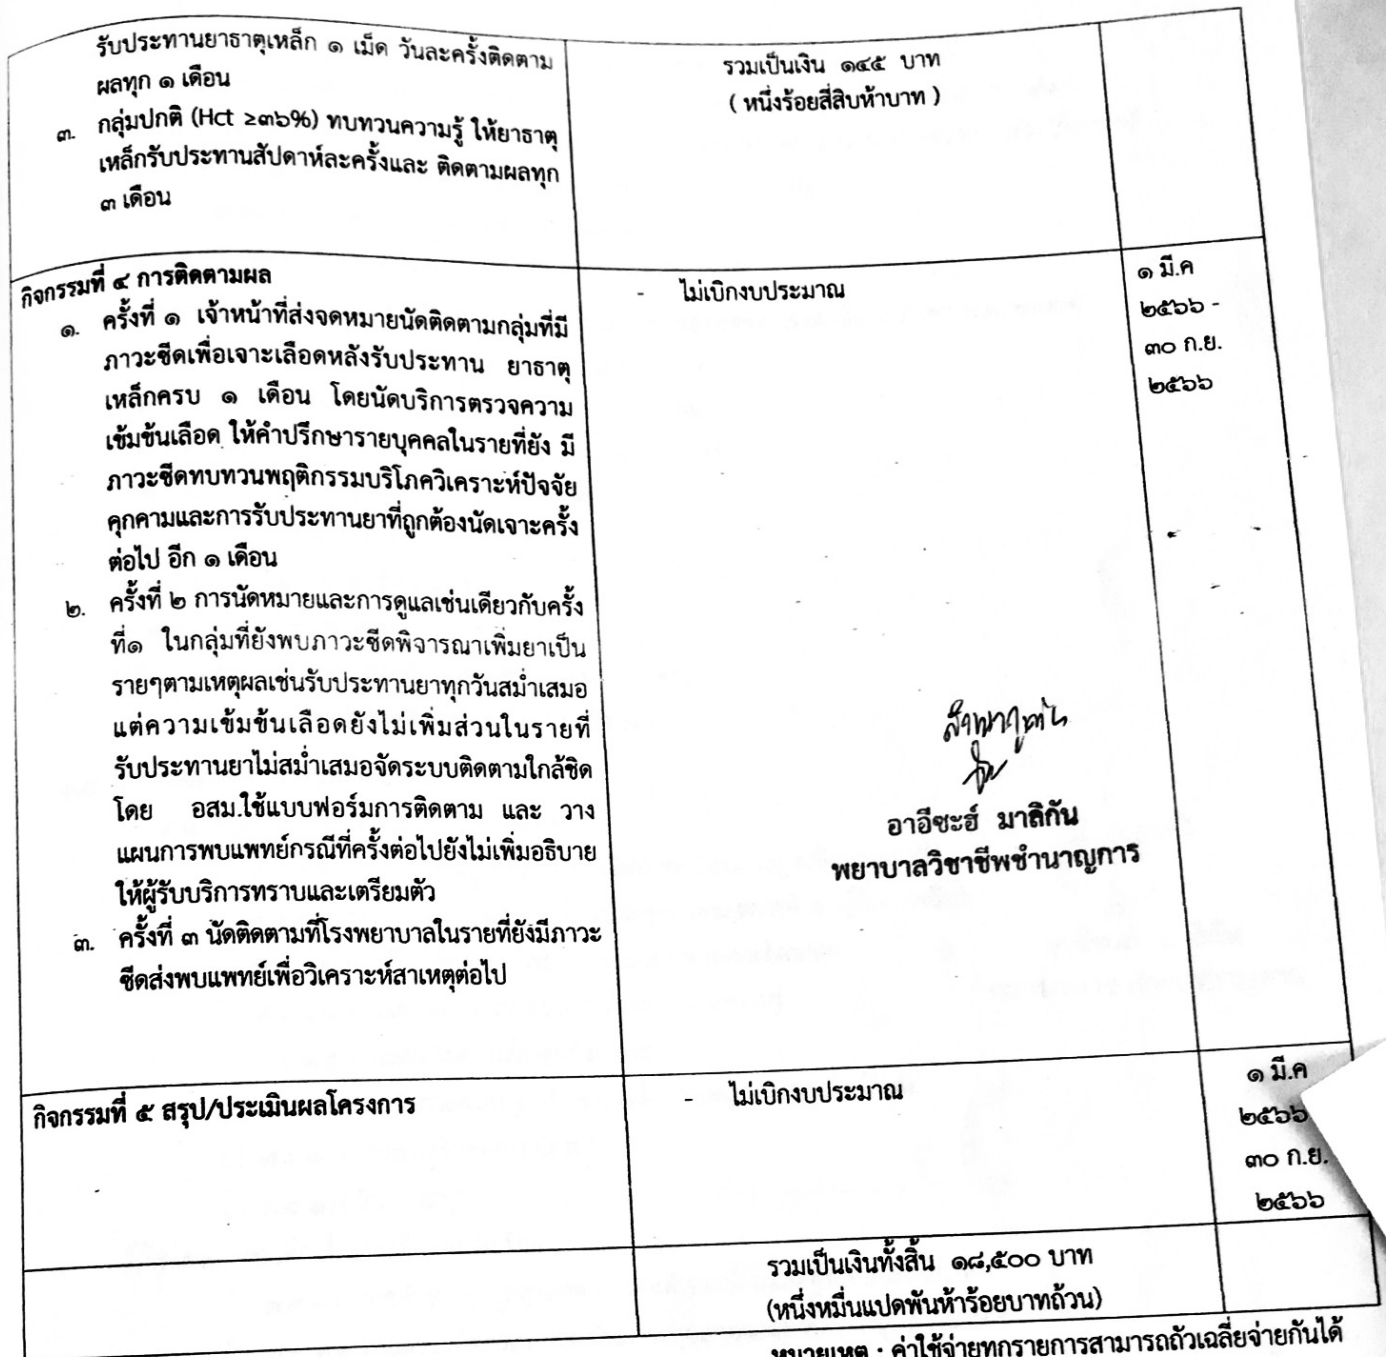 รับประทานยาธาตุเหล็ก ๑ เม็ด วันละครั้งติดตาม
ผลทุก ๑ เดือน
๓. กลุ่มปกติ (Hct ≥๓๖%) ทบทวนความรู้ ให้ยาธาตุ
เหล็กรับประทานสัปดาห์ละครั้งและ ติดตามผลทุก
๓ เดือน
รวมเป็นเงิน ๑๔๕ บาท
( หนึ่งร้อยสี่สิบห้าบาท )
กิจกรรมที่ ๔ การติดตามผล
๑. ครั้งที่ ๑ เจ้าหน้าที่ส่งจดหมายนัดติดตามกลุ่มที่มี
ภาวะซีดเพื่อเจาะเลือดหลังรับประทาน ยาธาตุ
เหล็กครบ ๑ เดือน โดยนัดบริการตรวจความ
เข้มข้นเลือด ให้คำปรึกษารายบุคคลในรายที่ยัง มี
ภาวะซีดทบทวนพฤติกรรมบริโภควิเคราะห์ปัจจัย
คุกคามและการรับประทานยาที่ถูกต้องนัดเจาะครั้ง
ต่อไป อีก ๑ เดือน
๒. ครั้งที่ ๒ การนัดหมายและการดูแลเช่นเดียวกับครั้ง
ที่๑ ในกลุ่มที่ยังพบภาวะซีดพิจารณาเพิ่มยาเป็น
รายๆตามเหตุผลเช่นรับประทานยาทุกวันสม่ำเสมอ
แต่ความเข้มข้นเลือดยังไม่เพิ่มส่วนในรายที่
รับประทานยาไม่สม่ำเสมอจัดระบบติดตามใกล้ชิด
โดย อสม.ใช้แบบฟอร์มการติดตาม และ วาง
แผนการพบแพทย์กรณีที่ครั้งต่อไปยังไม่เพิ่มอธิบาย
ให้ผู้รับบริการทราบและเตรียมตัว
๓. ครั้งที่ ๓ นัดติดตามที่โรงพยาบาลในรายที่ยังมีภาวะ
ซีดส่งพบแพทย์เพื่อวิเคราะห์สาเหตุต่อไป
- ไม่เบิกงบประมาณ
อาอีซะฮ์ มาลิกัน
พยาบาลวิชาชีพชำนาญการ
๑ มี.ค
๒๕๖๖ -
๓๐ ก.ย.
๒๕๖๖
กิจกรรมที่ ๕ สรุป/ประเมินผลโครงการ
- ไม่เบิกงบประมาณ
๑ มี.ค
๒๕๖๖
๓๐ ก.ย.
๒๕๖๖
รวมเป็นเงินทั้งสิ้น ๑๘,๕๐๐ บาท
(หนึ่งหมื่นแปดพันห้าร้อยบาทถ้วน)
หมายเหตุ : ค่าใช้จ่ายทุกรายการสามารถถัวเฉลี่ยจ่ายกันได้